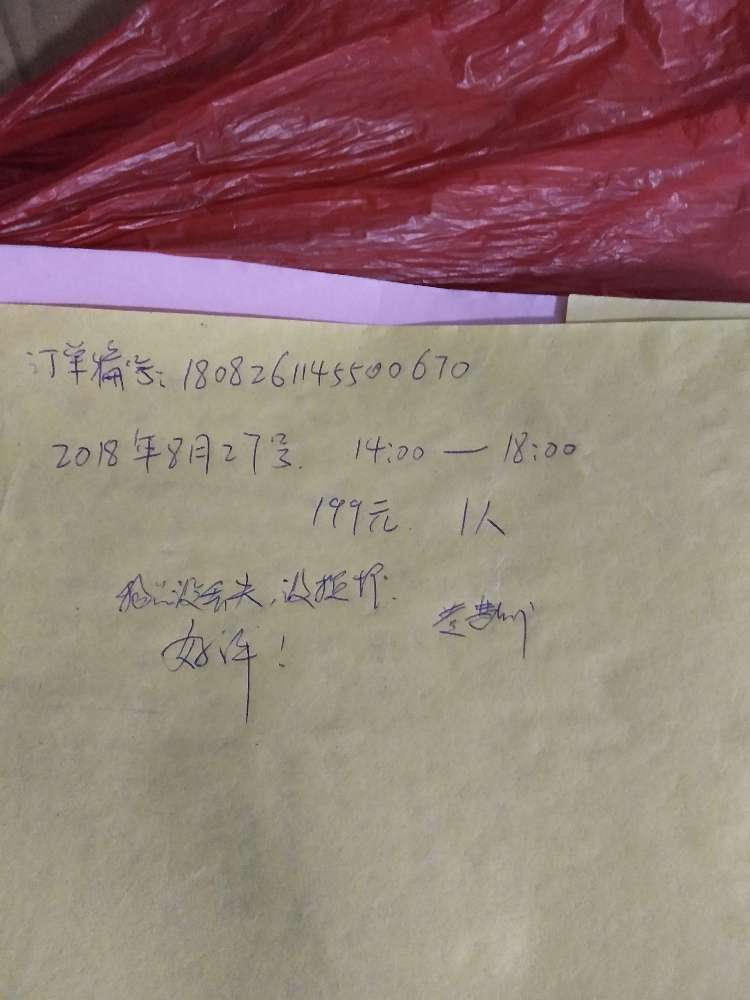 订单编号：1808261145500670
2018年8月27号. 14:00 — 18:00
199元. 1人
没丢失，没损坏.
好评！